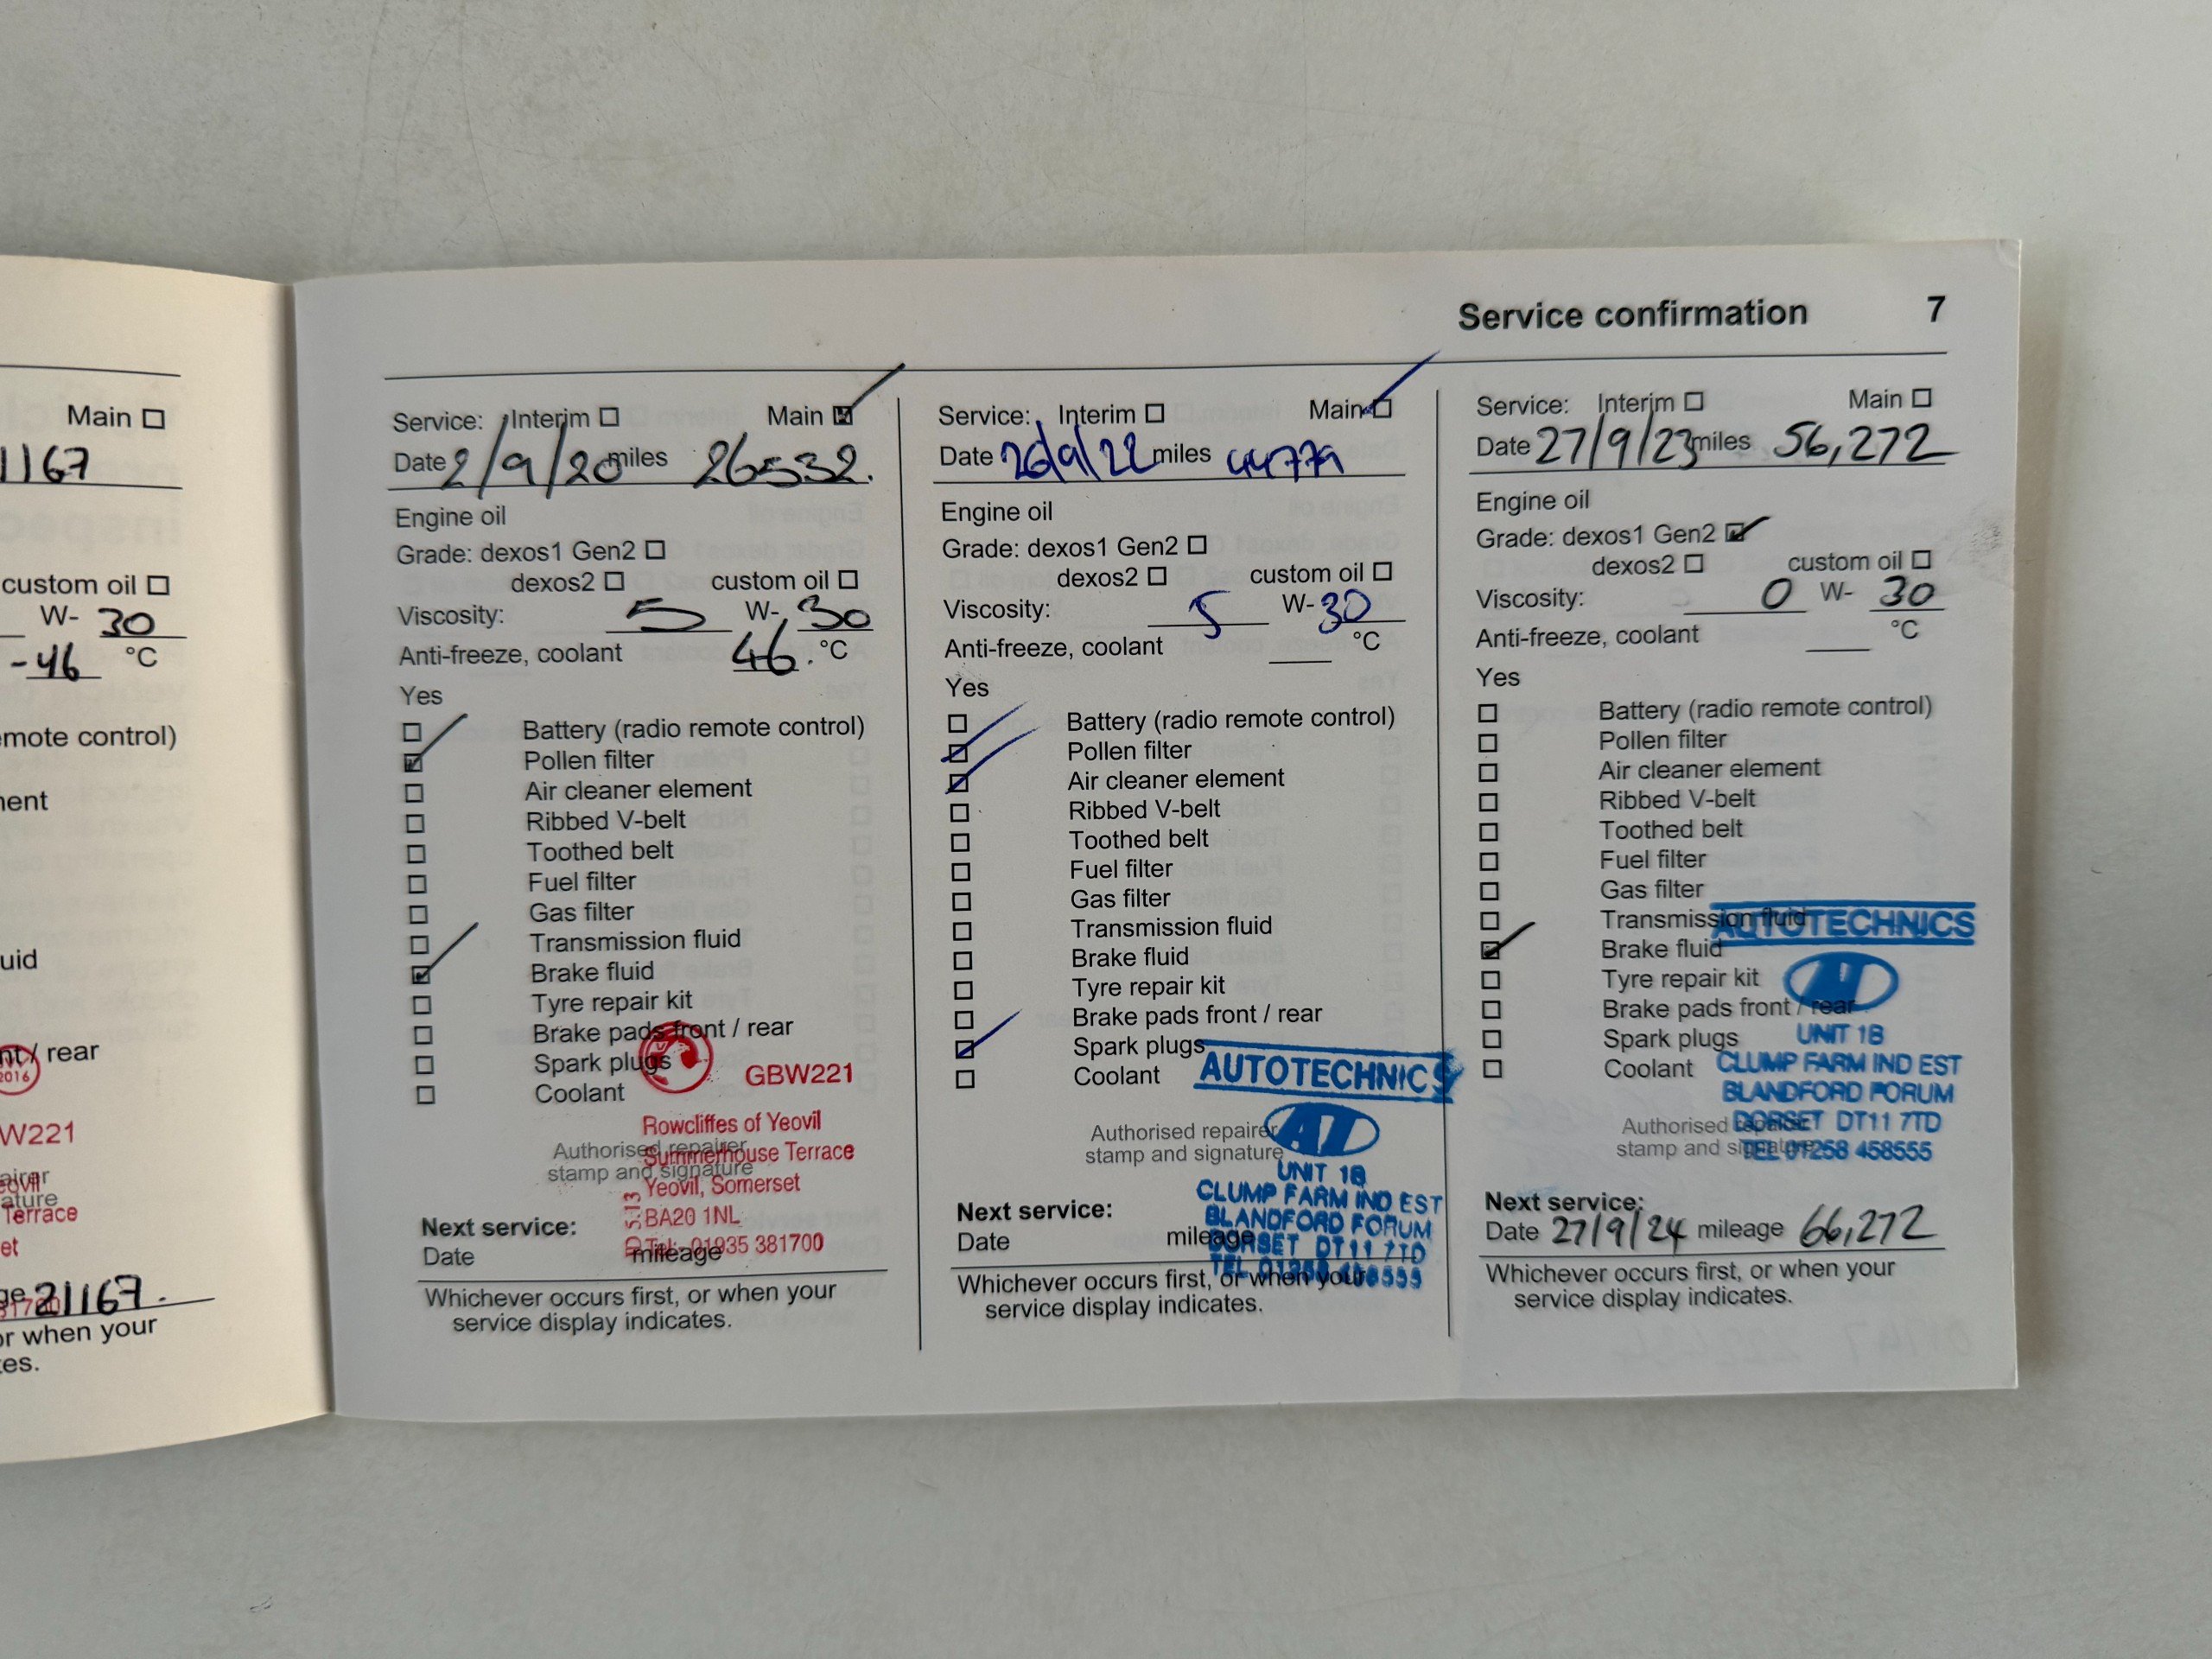 Main
1167
custom oil
W- 30
-46 °C
mote control)
uid
/ rear
2016
W221
Terrace
et
21167.
or when your
es.
Service confirmation 7
Service: Interim Main
Date 2/9/20 miles 26532.
Engine oil
Grade: dexos1 Gen2
dexos2 custom oil
Viscosity: 5 W- 30
Anti-freeze, coolant 46. °C
Yes
Battery (radio remote control)
Pollen filter
Air cleaner element
Ribbed V-belt
Toothed belt
Fuel filter
Gas filter
Transmission fluid
Brake fluid
Tyre repair kit
Brake pads front / rear
Spark plugs
Coolant
GBW221
Rowcliffes of Yeovil
Summerhouse Terrace
Yeovil, Somerset
BA20 1NL
Tel: 01935 381700
Authorised repairer
stamp and signature
Next service:
Date mileage
Whichever occurs first, or when your
service display indicates.
Service: Interim Main
Date 26/9/22 miles 44779
Engine oil
Grade: dexos1 Gen2
dexos2 custom oil
Viscosity: 5 W- 30
Anti-freeze, coolant °C
Yes
Battery (radio remote control)
Pollen filter
Air cleaner element
Ribbed V-belt
Toothed belt
Fuel filter
Gas filter
Transmission fluid
Brake fluid
Tyre repair kit
Brake pads front / rear
Spark plugs
Coolant
AUTOTECHNICS
AT
UNIT 1B
CLUMP FARM IND EST
BLANDFORD FORUM
DORSET DT11 7TD
TEL 01258 458555
Authorised repairer
stamp and signature
Next service:
Date mileage
Whichever occurs first, or when your
service display indicates.
Service: Interim Main
Date 27/9/23 miles 56,272
Engine oil
Grade: dexos1 Gen2
dexos2 custom oil
Viscosity: 0 W- 30
Anti-freeze, coolant °C
Yes
Battery (radio remote control)
Pollen filter
Air cleaner element
Ribbed V-belt
Toothed belt
Fuel filter
Gas filter
Transmission fluid
Brake fluid
Tyre repair kit
Brake pads front / rear
Spark plugs
Coolant
AUTOTECHNICS
UNIT 1B
CLUMP FARM IND EST
BLANDFORD FORUM
DORSET DT11 7TD
TEL 01258 458555
Authorised repairer
stamp and signature
Next service:
Date 27/9/24 mileage 66,272
Whichever occurs first, or when your
service display indicates.